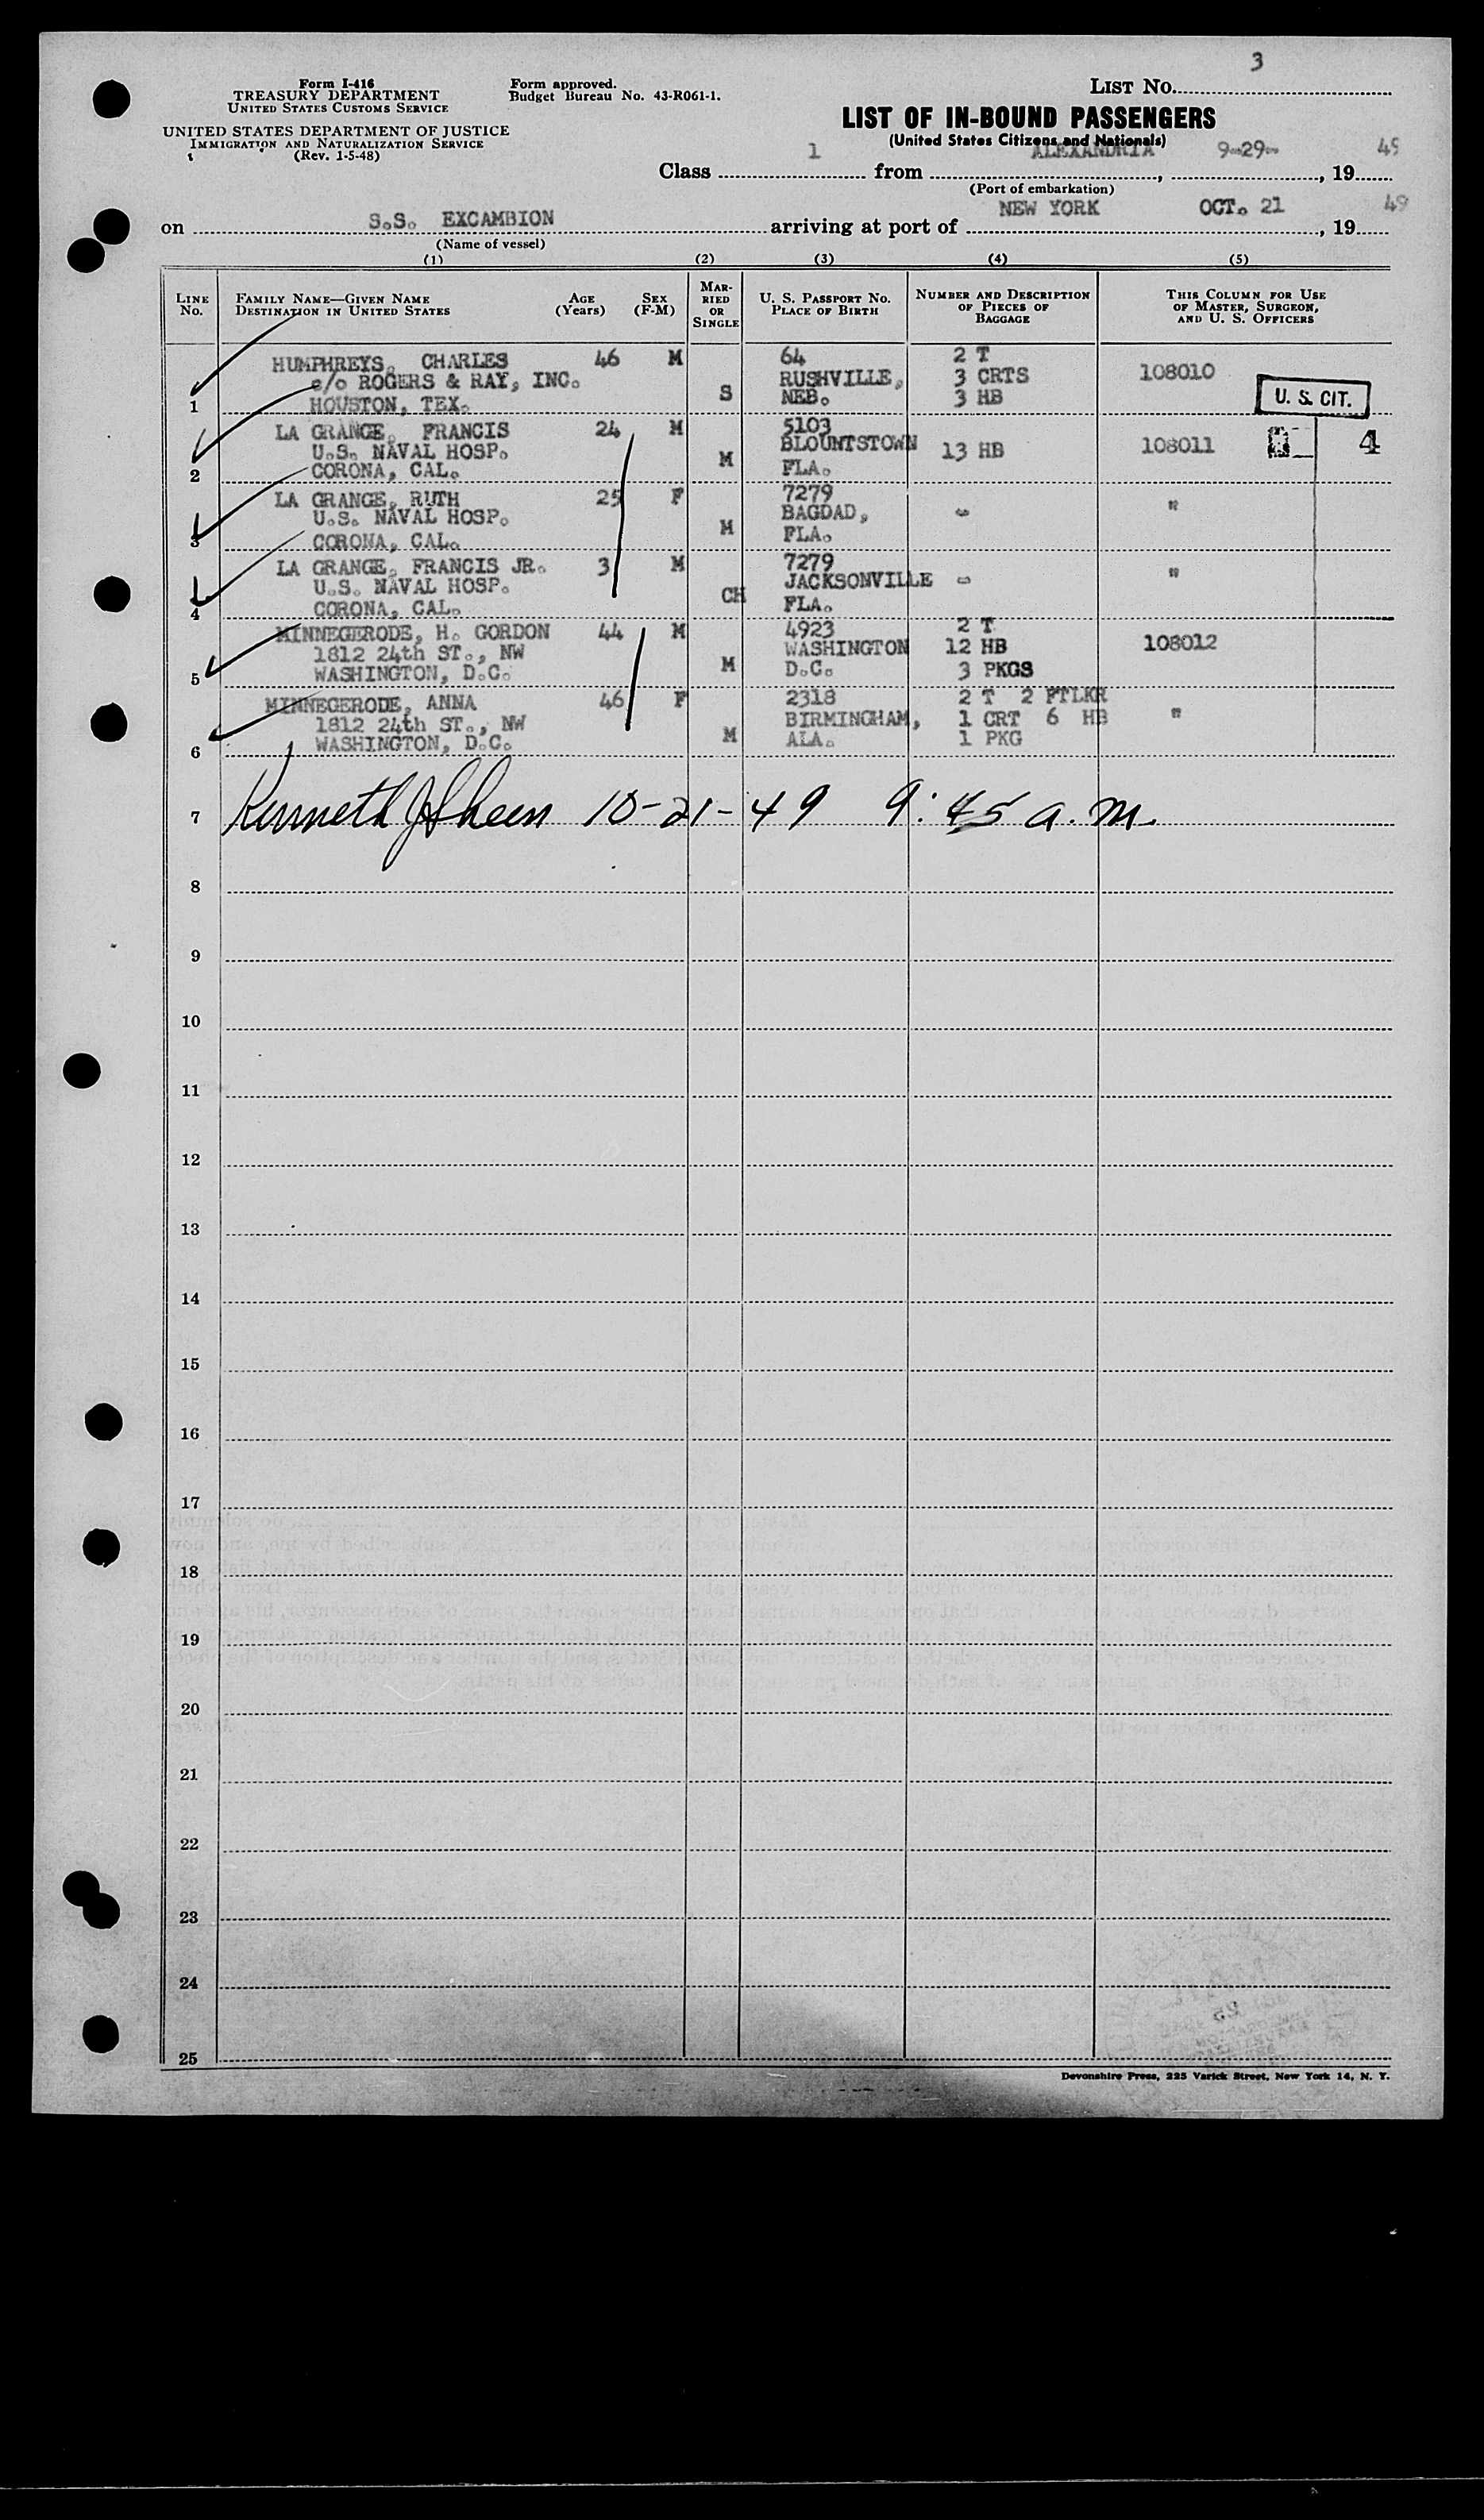 3
Form I-416
TREASURY DEPARTMENT
UNITED STATES CUSTOMS SERVICE
Form approved.
Budget Bureau No. 43-R061-1.
LIST No.
UNITED STATES DEPARTMENT OF JUSTICE
IMMIGRATION AND NATURALIZATION SERVICE
(Rev. 1-5-48)
LIST OF IN-BOUND PASSENGERS
(United States Citizens and Nationals)
Class 1 from ALEXANDRIA, 9-29-, 19 49
(Port of embarkation)
on S.S. EXCAMBION arriving at port of NEW YORK OCT. 21, 19 49
(Name of vessel)
(1) (2) (3) (4) (5)
LINE No. FAMILY NAME—GIVEN NAME DESTINATION IN UNITED STATES AGE (Years) SEX (F-M) MARRIED OR SINGLE U. S. PASSPORT No. PLACE OF BIRTH NUMBER AND DESCRIPTION OF PIECES OF BAGGAGE THIS COLUMN FOR USE OF MASTER, SURGEON, AND U. S. OFFICERS
HUMPHREYS, CHARLES 46 M 64 2 T
c/o ROGERS & RAY, INC. RUSHVILLE, 3 CRTS 108010
1 HOUSTON, TEX. S NEB. 3 HB U. S. CIT.
LA GRANGE, FRANCIS 24 M 5103
U.S. NAVAL HOSP. BLOUNTSTOWN 13 HB 108011 4
2 CORONA, CAL. M FLA.
LA GRANGE, RUTH 25 F 7279
U.S. NAVAL HOSP. BAGDAD, - "
3 CORONA, CAL. M FLA.
LA GRANGE, FRANCIS JR. 3 M 7279
U.S. NAVAL HOSP. JACKSONVILLE - "
4 CORONA, CAL. CH FLA.
MINNEGERODE, H. GORDON 44 M 4923 2 T
1812 24th ST., NW WASHINGTON 12 HB 108012
5 WASHINGTON, D.C. M D.C. 3 PKGS
MINNEGERODE, ANNA 46 F 2318 2 T 2 FTLKR
1812 24th ST., NW BIRMINGHAM, 1 CRT 6 HB "
6 WASHINGTON, D.C. M ALA. 1 PKG
7 Kenneth J Sheen 10-21-49 9:45 a.m.
8
9
10
11
12
13
14
15
16
17
18
19
20
21
22
23
24
25
Devonshire Press, 225 Varick Street, New York 14, N. Y.